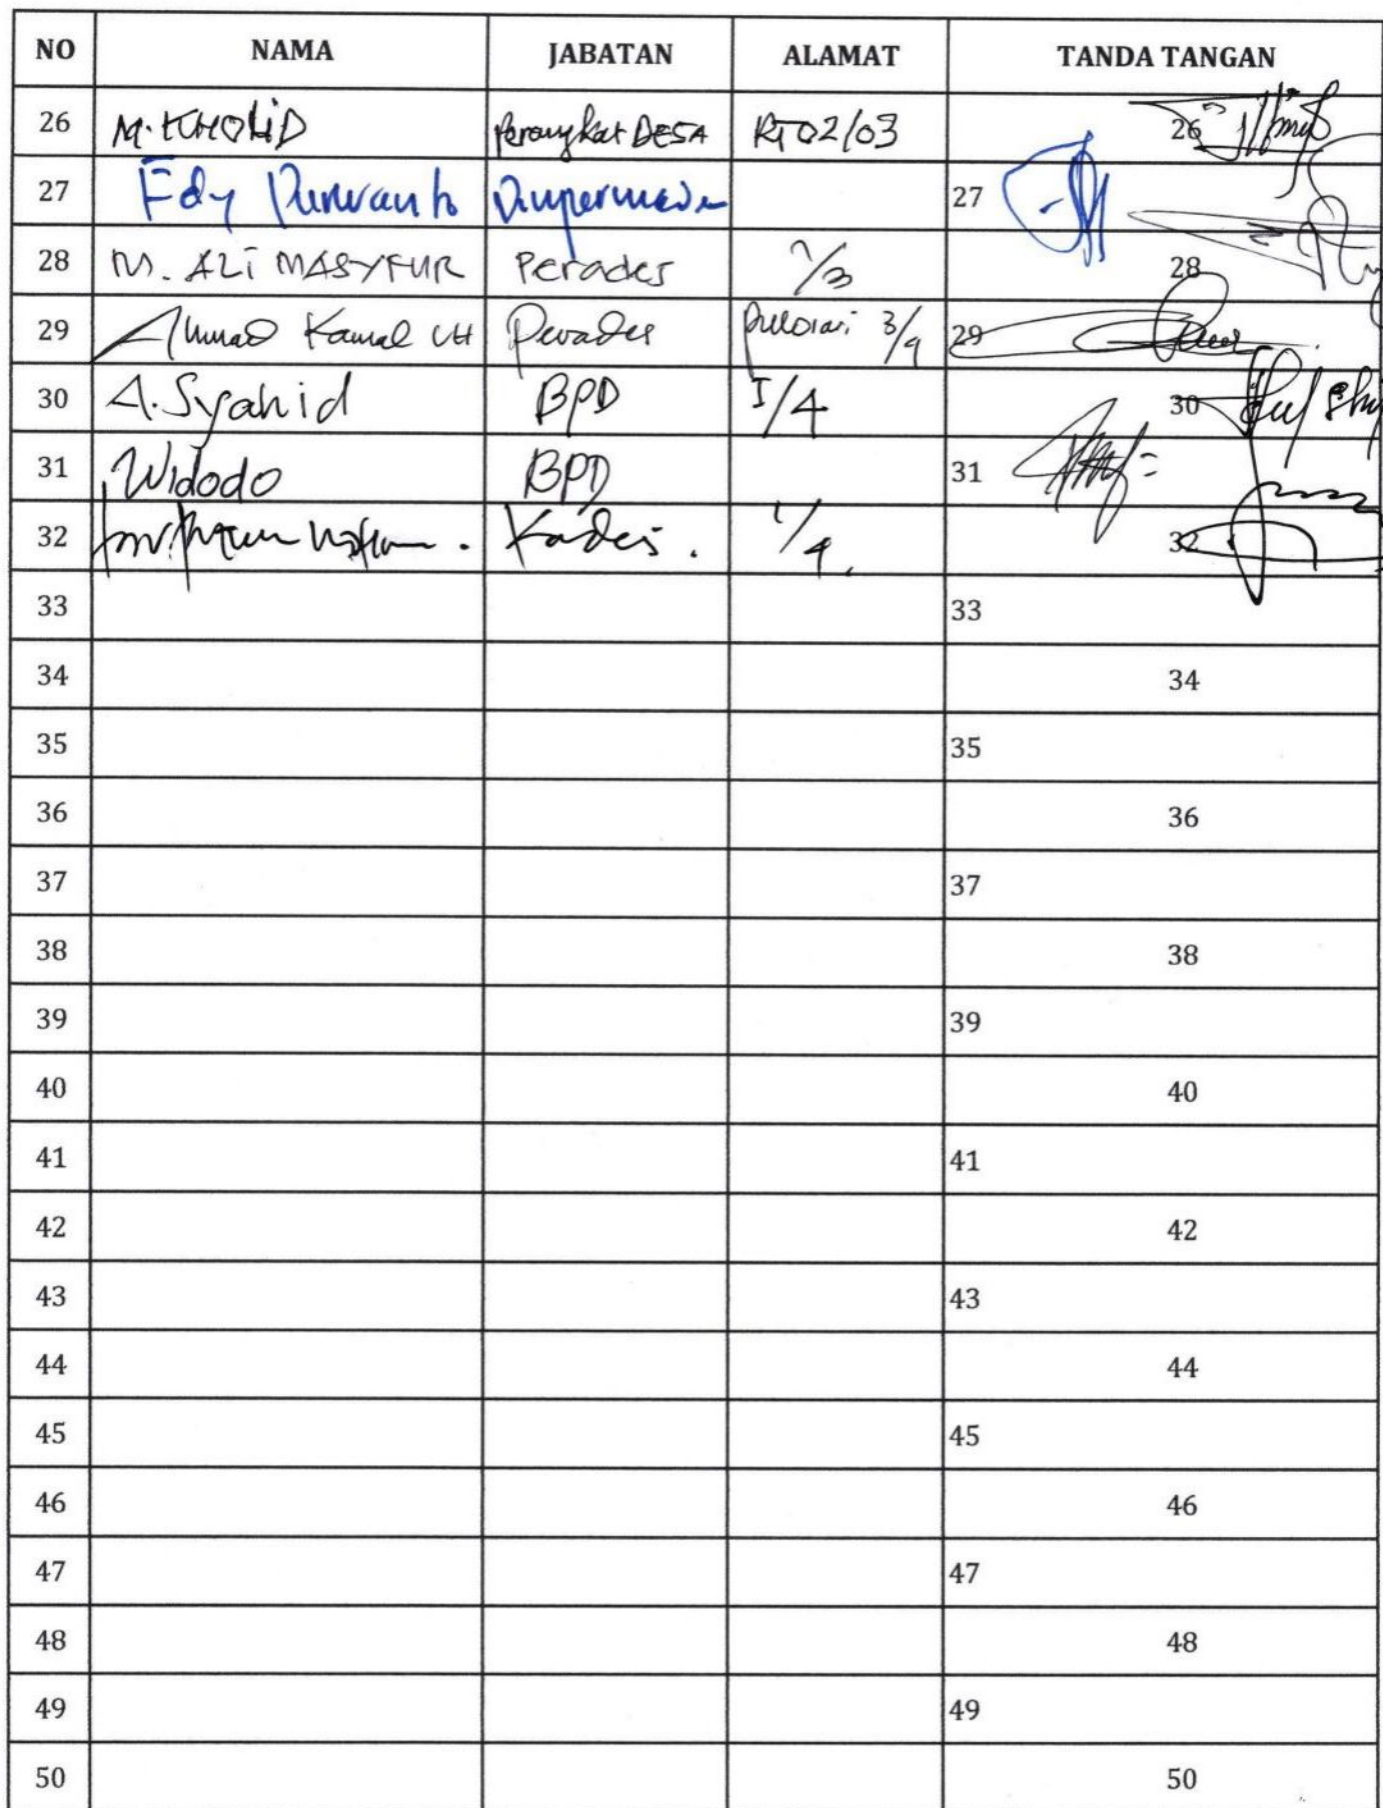 NO NAMA JABATAN ALAMAT TANDA TANGAN
26 M. KHOLID Perangkat DESA RT 02/03 26
27 Edy Purwanto Dinpermades 27
28 M. ALI MASYFUR Perades 1/3 28
29 Ahmad Kamal UH Perades Pulosari 3/4 29
30 A. Syahid BPD I/4 30
31 Widodo BPD 31
32 Kades. 1/4. 32
33 33
34 34
35 35
36 36
37 37
38 38
39 39
40 40
41 41
42 42
43 43
44 44
45 45
46 46
47 47
48 48
49 49
50 50